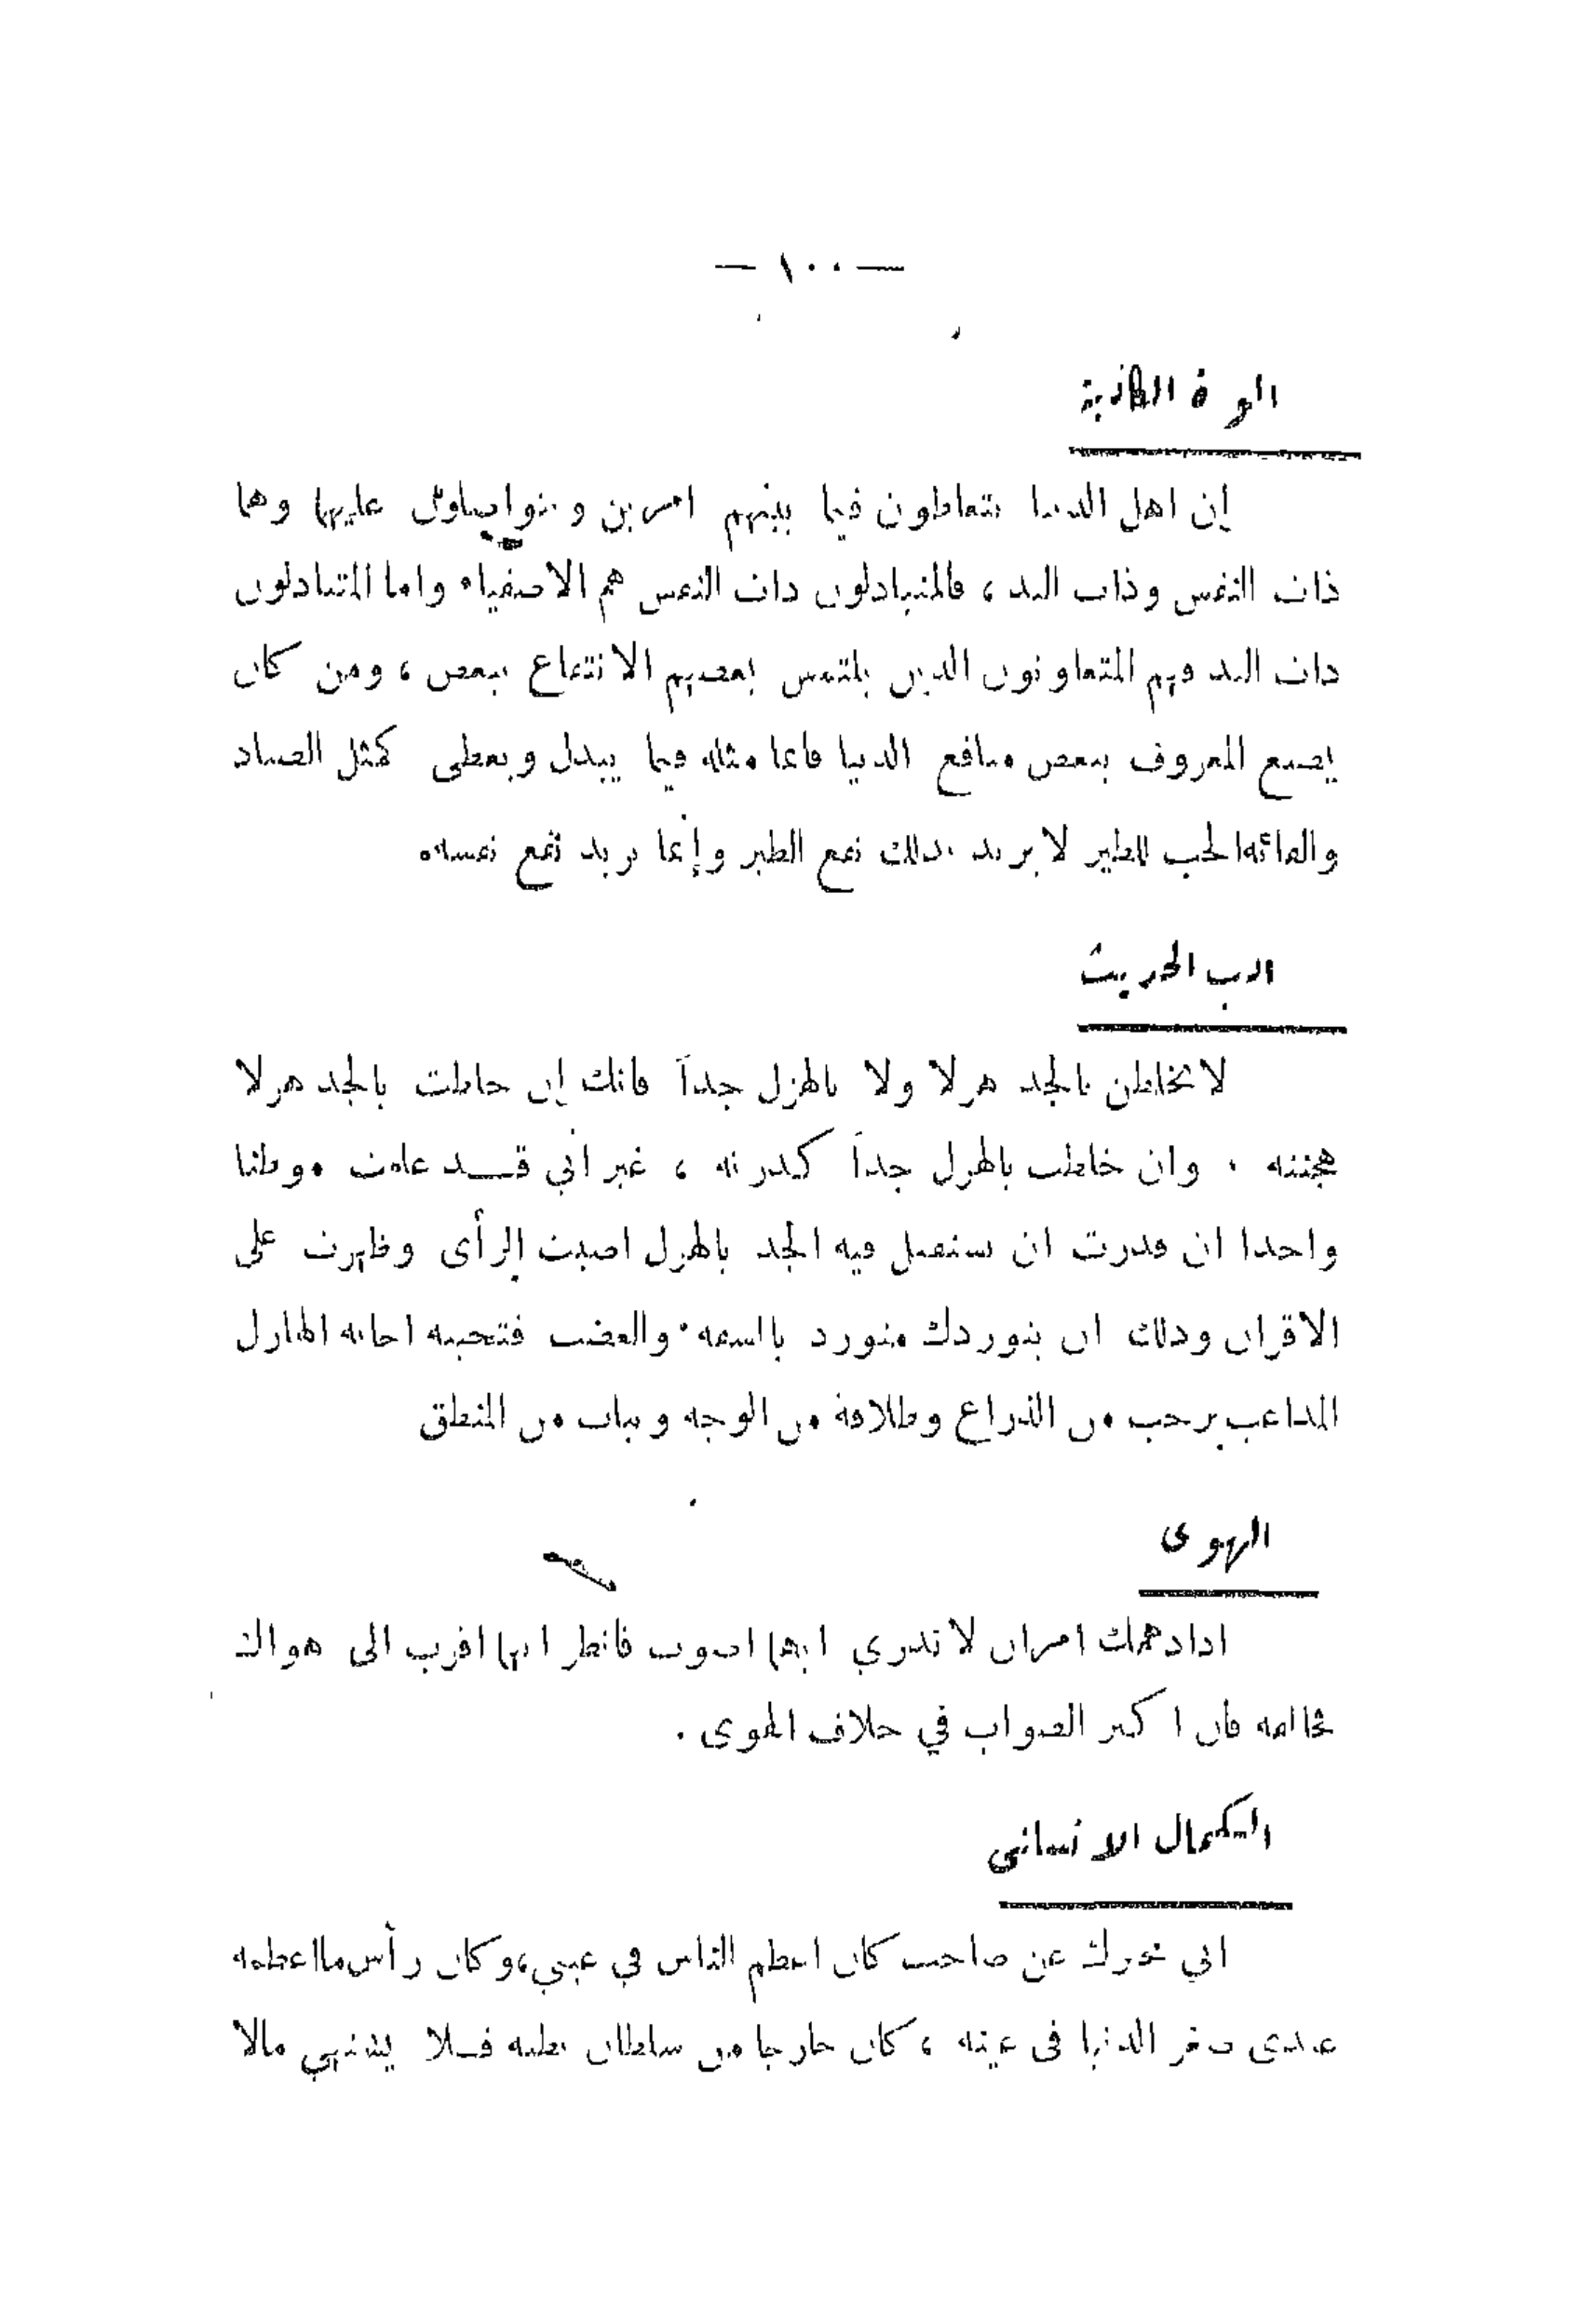 — ١٠٠ —
المودة الكاذبة
إن اهل الدنيا يتعاطون فيما بينهم امرين ويتواصلون عليهما وهما
ذات النفس وذات اليد ، فالمتبادلون ذات النفس هم الاصفياء واما المتبادلون
ذات اليد فهم المتعاونون الذين يلتمس بعضهم الانتفاع ببعض ، ومن كان
يصنع المعروف ببعض منافع الدنيا فانما مثله فيما يبذل ويعطى كمثل الصياد
والقائه الحب للطير لا يريد بذلك نفع الطير وإنما يريد نفع نفسه.
ادب الحديث
لا تخلطن بالجد هزلا ولا بالهزل جداً فانك إن خلطت بالجد هزلا
هجنته . وان خلطت بالهزل جداً كدرته ، غير أني قد علمت موطنا
واحدا ان قدرت ان تستقبل فيه الجد بالهزل اصبت الرأى وظهرت على
الاقران وذلك ان يتوردك متورد بالسفه والغضب فتجيبه اجابة الهازل
المداعب برحب من الذراع وطلاقة من الوجه وثبات من المنطق
الهوى
اذا دهمك امران لا تدري ايهما اصوب فانظر ايهما اقرب الى هواك
فخالفه فان اكثر الصواب في خلاف الهوى .
الكمال الانسانى
اني مخبرك عن صاحب كان اعظم الناس في عيني، وكان رأس ما اعظمه
عندى صغر الدنيا فى عينه ، كان خارجا من سلطان بطنه فلا يشتهي مالا